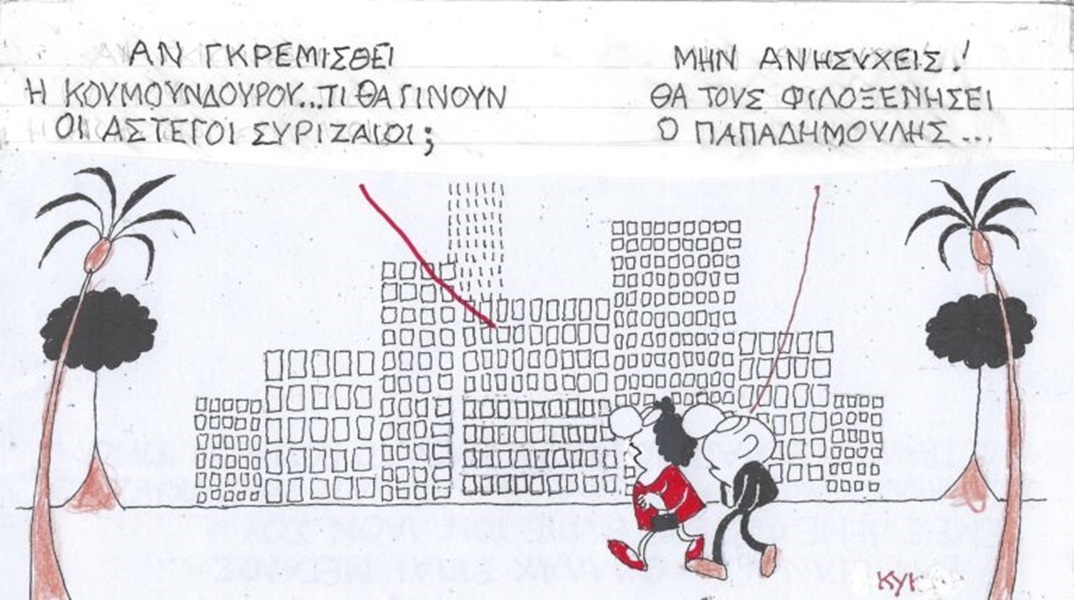 ΑΝ ΓΚΡΕΜΙΣΘΕΙ
Η ΚΟΥΜΟΥΝΔΟΥΡΟΥ...ΤΙ ΘΑ ΓΙΝΟΥΝ
ΟΙ ΑΣΤΕΓΟΙ ΣΥΡΙΖΑΙΟΙ;
ΜΗΝ ΑΝΗΣΥΧΕΙΣ!
ΘΑ ΤΟΥΣ ΦΙΛΟΞΕΝΗΣΕΙ
Ο ΠΑΠΑΔΗΜΟΥΛΗΣ...